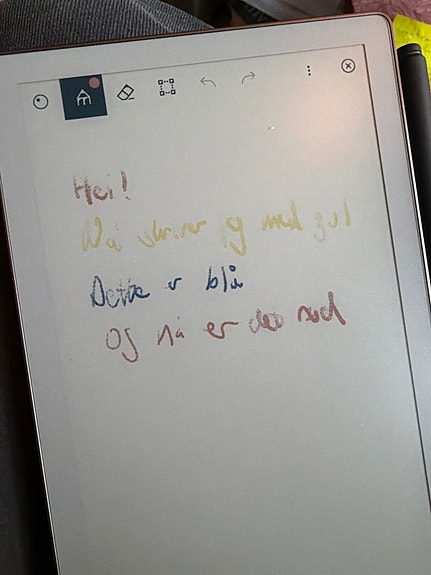 Hei!
Nå skriver jeg med gul
Dette er blå
Og nå er det rød